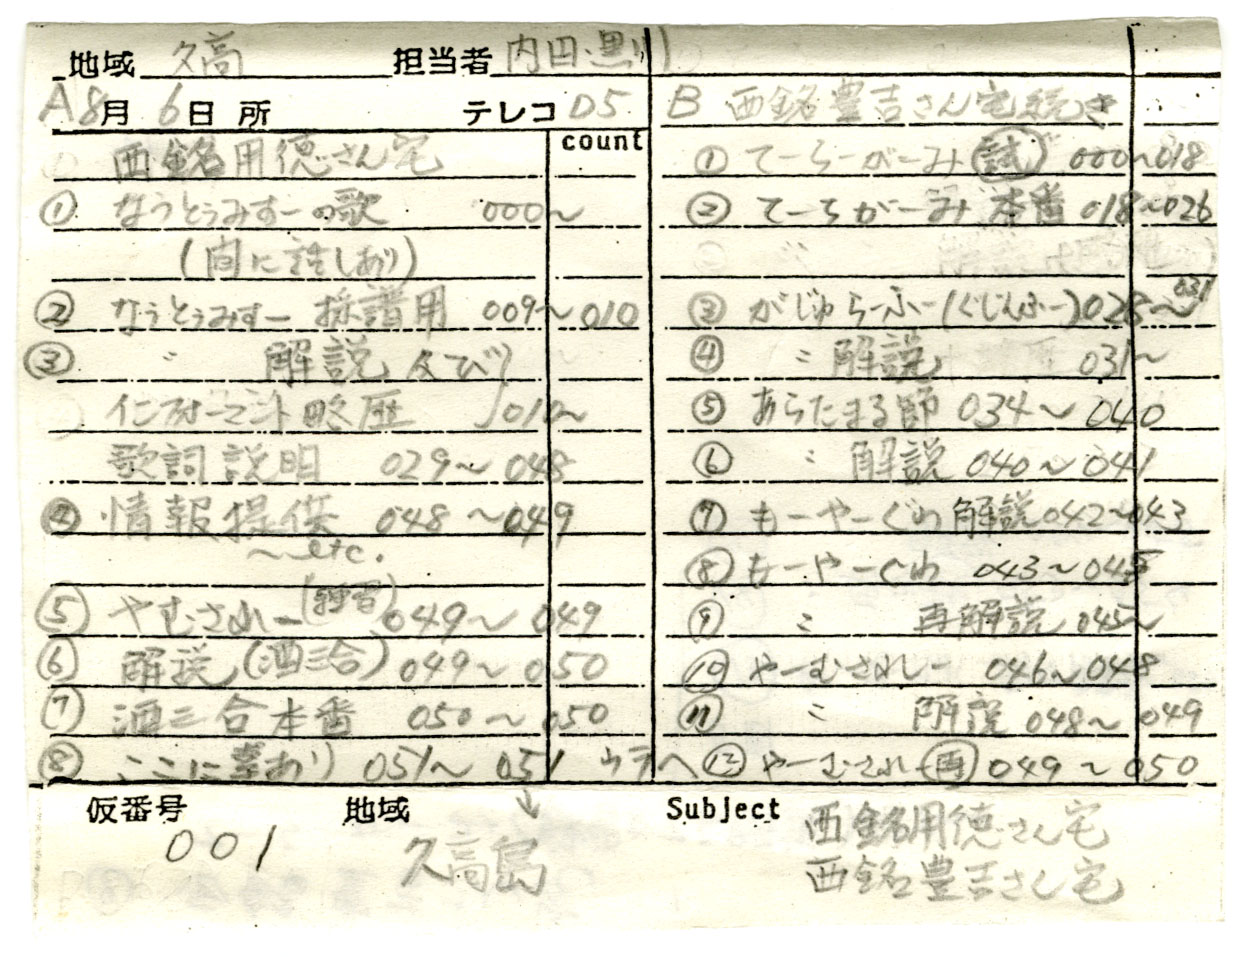 地域 久高 担当者 内田・黒川
A 8月 6日 所 テレコ D5
count
西銘用徳さん宅
① なうとぅみすーの歌 000〜
(間に話しあり)
② なうとぅみすー 採譜用 009〜010
③ 〃 解説 及び
インフォーマント略歴 010〜
歌詞説明 029〜048
④ 情報提供 048〜049
〜etc.
⑤ やむされー(練習) 049〜049
⑥ 解説(酒三合) 049〜050
⑦ 酒三合本番 050〜050
⑧ ここに あり 051〜051 ウラへ
B 西銘豊吉さん宅続き
① てーらーがーみ 試 000〜018
② てーらがーみ 本番 018〜026
③ がじゅらーふー(ぐじんふー) 028〜031
④ 〃 解説 031〜
⑤ あらたまる節 034〜040
⑥ 〃 解説 040〜041
⑦ もーやーぐわ 解説 042〜043
⑧ もーやーぐわ 043〜045
⑨ 〃 再解説 045〜
⑩ やーむされー 046〜048
⑪ 〃 解説 048〜049
⑫ やーむされー 再 049〜050
仮番号 地域 Subject
001 久高島 西銘用徳さん宅
西銘豊吉さん宅